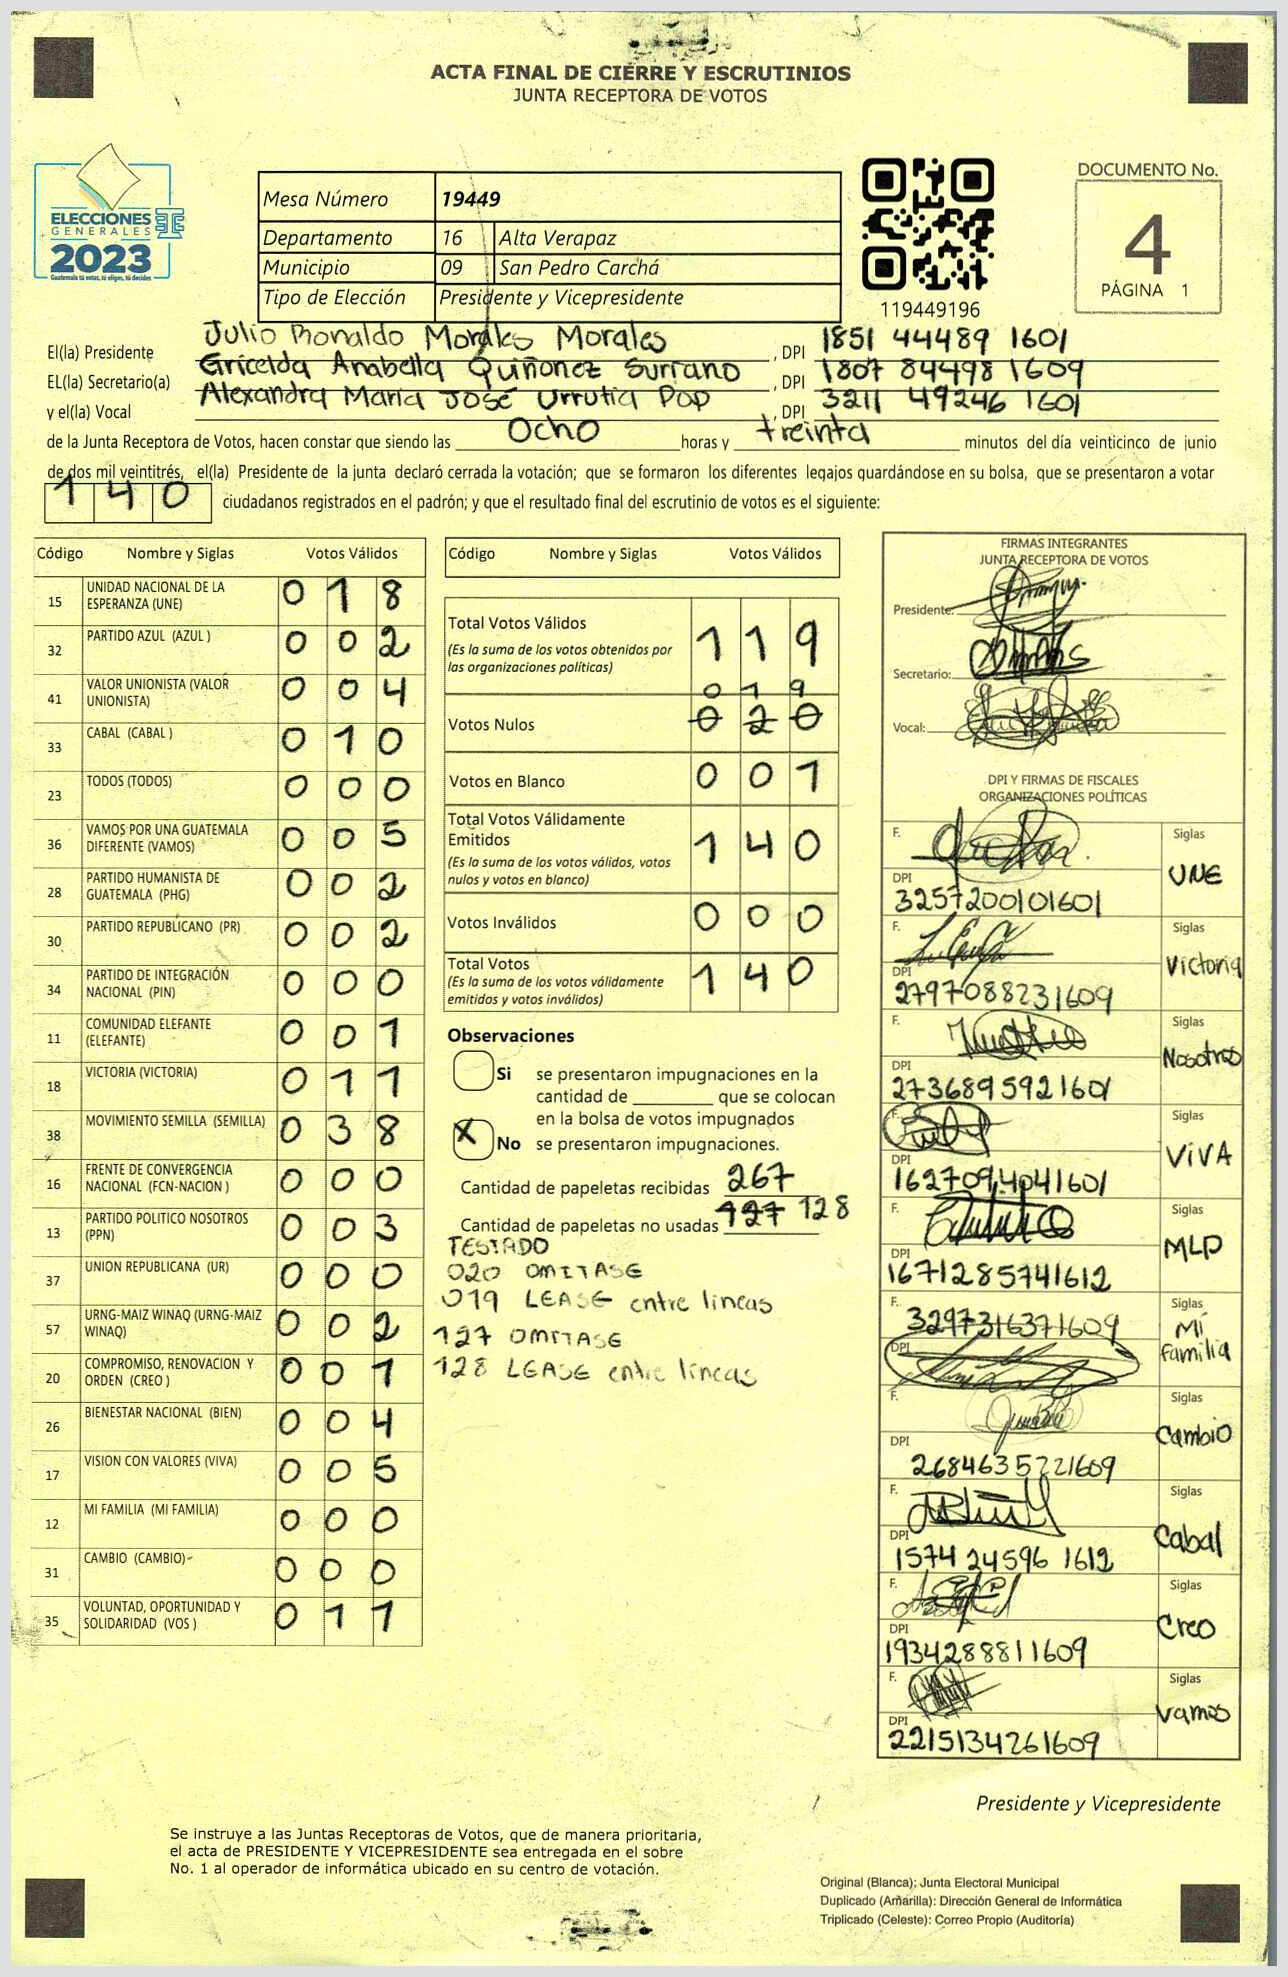 ACTA FINAL DE CIERRE Y ESCRUTINIOS
JUNTA RECEPTORA DE VOTOS
ELECCIONES
GENERALES
2023
Guatemala tú votas, tú eliges, tú decides
Mesa Número 19449
Departamento 16 Alta Verapaz
Municipio 09 San Pedro Carchá
Tipo de Elección Presidente y Vicepresidente
119449196
DOCUMENTO No.
4
PÁGINA 1
El(la) Presidente Julio Ronaldo Morales Morales , DPI 1851 44489 1601
EL(la) Secretario(a) Gricelda Anabella Quiñonez Surrano , DPI 1807 84498 1609
y el(la) Vocal Alexandra María José Urrutia Pop , DPI 3211 49246 1601
de la Junta Receptora de Votos, hacen constar que siendo las Ocho horas y treinta minutos del día veinticinco de junio
de dos mil veintitrés, el(la) Presidente de la junta declaró cerrada la votación; que se formaron los diferentes legajos guardándose en su bolsa, que se presentaron a votar
140 ciudadanos registrados en el padrón; y que el resultado final del escrutinio de votos es el siguiente:
Código Nombre y Siglas Votos Válidos
15 UNIDAD NACIONAL DE LA ESPERANZA (UNE) 018
32 PARTIDO AZUL (AZUL ) 002
41 VALOR UNIONISTA (VALOR UNIONISTA) 004
33 CABAL (CABAL ) 010
23 TODOS (TODOS) 000
36 VAMOS POR UNA GUATEMALA DIFERENTE (VAMOS) 005
28 PARTIDO HUMANISTA DE GUATEMALA (PHG) 002
30 PARTIDO REPUBLICANO (PR) 002
34 PARTIDO DE INTEGRACIÓN NACIONAL (PIN) 000
11 COMUNIDAD ELEFANTE (ELEFANTE) 001
18 VICTORIA (VICTORIA) 011
38 MOVIMIENTO SEMILLA (SEMILLA) 038
16 FRENTE DE CONVERGENCIA NACIONAL (FCN-NACION ) 000
13 PARTIDO POLITICO NOSOTROS (PPN) 003
37 UNION REPUBLICANA (UR) 000
57 URNG-MAIZ WINAQ (URNG-MAIZ WINAQ) 002
20 COMPROMISO, RENOVACION Y ORDEN (CREO ) 001
26 BIENESTAR NACIONAL (BIEN) 004
17 VISION CON VALORES (VIVA) 005
12 MI FAMILIA (MI FAMILIA) 000
31 CAMBIO (CAMBIO) 000
35 VOLUNTAD, OPORTUNIDAD Y SOLIDARIDAD (VOS ) 011
Código Nombre y Siglas Votos Válidos
Total Votos Válidos 119
(Es la suma de los votos obtenidos por
las organizaciones políticas)
019
Votos Nulos 020
Votos en Blanco 001
Total Votos Válidamente
Emitidos 140
(Es la suma de los votos válidos, votos
nulos y votos en blanco)
Votos Inválidos 000
Total Votos 140
(Es la suma de los votos válidamente
emitidos y votos inválidos)
Observaciones
Si se presentaron impugnaciones en la
cantidad de ________ que se colocan
en la bolsa de votos impugnados
X No se presentaron impugnaciones.
Cantidad de papeletas recibidas 267
Cantidad de papeletas no usadas 127 128
TESTADO
020 OMITASE
019 LEASE entre lineas
127 OMITASE
128 LEASE entre lineas
FIRMAS INTEGRANTES
JUNTA RECEPTORA DE VOTOS
Presidente:
Secretario:
Vocal:
DPI Y FIRMAS DE FISCALES
ORGANIZACIONES POLÍTICAS
F. Siglas
DPI UNE
3257200101601
F. Siglas
DPI Victoria
2797088231609
F. Siglas
DPI Nosotros
2736895921601
F. Siglas
DPI VIVA
1627094041601
F. Siglas
DPI MLP
1671285741612
F. Siglas
3297316371609 Mi
DPI familia
F. Siglas
DPI Cambio
2684635221609
F. Siglas
DPI Cabal
1574 24596 1612
F. Siglas
DPI Creo
1934288811609
F. Siglas
DPI Vamos
2215134261609
Presidente y Vicepresidente
Se instruye a las Juntas Receptoras de Votos, que de manera prioritaria,
el acta de PRESIDENTE Y VICEPRESIDENTE sea entregada en el sobre
No. 1 al operador de informática ubicado en su centro de votación.
Original (Blanca): Junta Electoral Municipal
Duplicado (Amarilla): Dirección General de Informática
Triplicado (Celeste): Correo Propio (Auditoría)